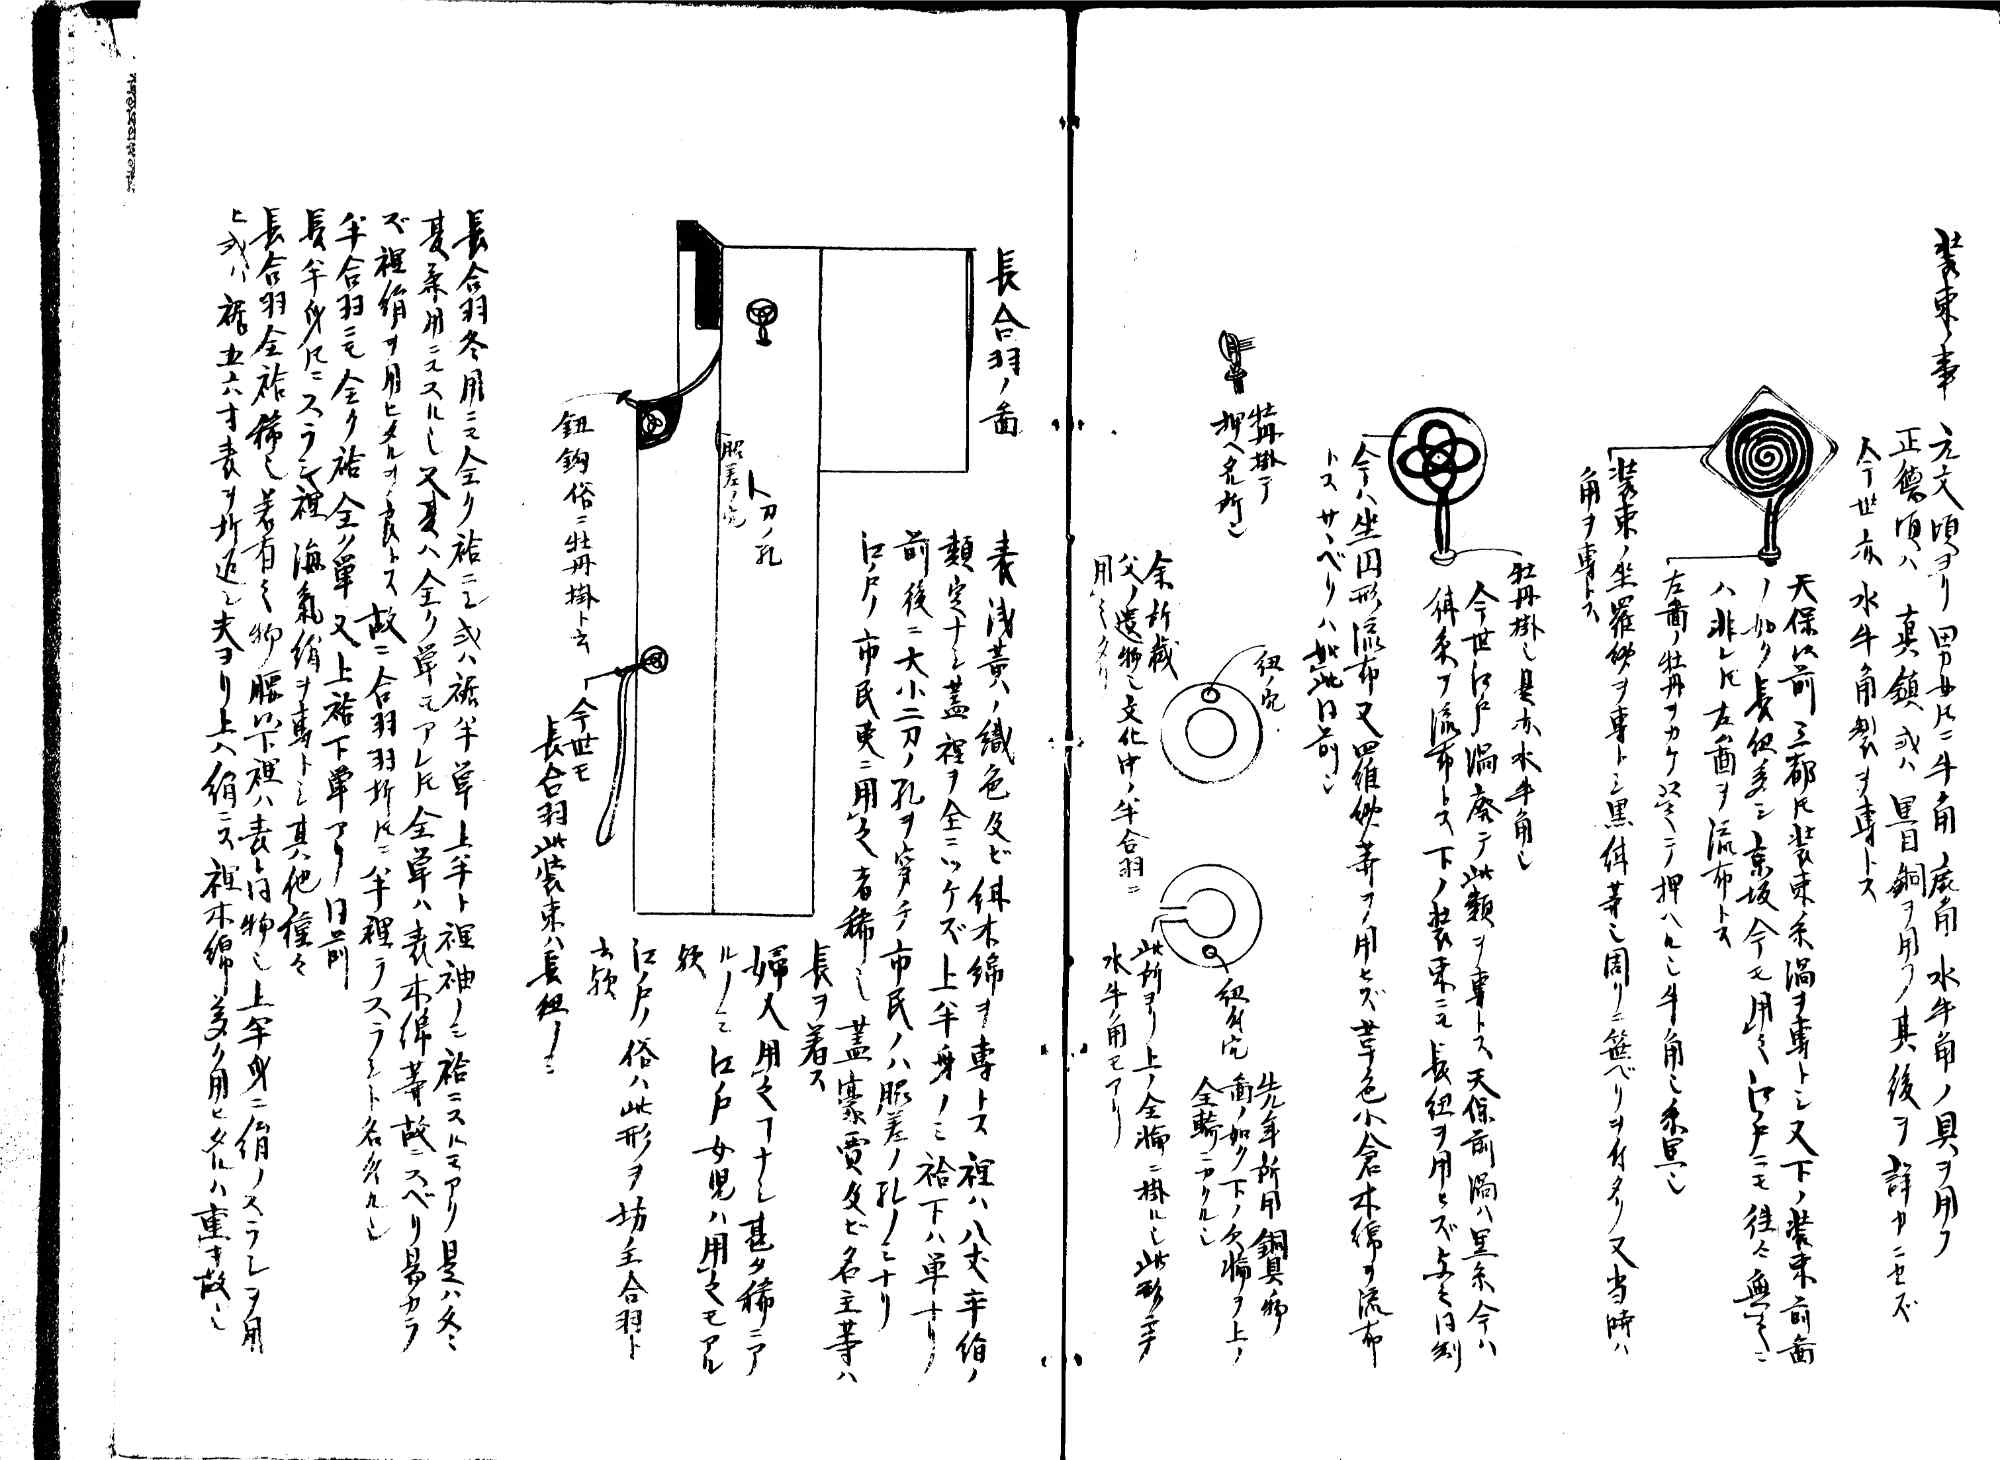 装束ノ事 元文頃ヨリ男女トモニ牛角鹿角水牛角ノ具ヲ用フ
正徳頃ハ真鍮或ハ黒目銅ヲ用フ其後ヲ詳カニセズ
今世亦水牛角製ヲ専トス
天保以前三都トモ装束糸渦ヲ専トシ又下ノ装束前図
ノ如ク長紐多シ京坂今モ用之江戸ニモ往々無之ニ
ハ非レトモ左図ヲ流布トス
左図ノ牡丹ヲカケ翌ミテ押ヘルシ牛角シ糸黒シ
装束ノ坐羅紗ヲ専トシ黒繻等シ周リニ笹ベリヲ付タリ又当時ハ
角ヲ専トス
牡丹掛シ是亦水牛角シ
今世江戸渦廃テ此類ヲ専トス天保前渦ハ黒糸今ハ
ノ流布トス下ノ装束ニモ長紐ヲ用ヒズ
今ハ坐円形流布又四羅紗等ヲノ用ヒズ茶色小倉木綿ヲ流布
トスササベリハ如此同前シ
牡丹掛テ
押ヘタル所シ
紐ノ穴
余所蔵
父ノ遺物シ文化中ノ半合羽ニ
用之タリ
紐付穴
先年所用銅具ノ
図ノ如ク下ノ欠輪ヲ上ノ
全輪ニカクルシ
此所ヨリ上ノ全輪ニ掛ルシ此形ニテ
水牛ノ角モアリ
長合羽ノ図
表浅黄ノ織色及ビ木綿ヲ専トス裡ハ八丈絹ノ
類定ナシ蓋裡ヲ全ニツケズ上半身ノミ袷下ハ単ナリ
前後ニ大小二刀ノ孔ヲ穿チ市民ノハ脇差ノ孔ノミナリ
江戸ノ市民更ニ用之者稀シ蓋豪賈及ビ名主等ハ
長ヲ着ス
婦人用之コナシ甚タ稀ニア
ルノミ江戸女児ハ用之モアル
歟
江戸ノ俗ハ此形ヲ坊主合羽ト
云歟
ト刀ノ孔
脇差ノ穴
鈕鉤俗ニ牡丹掛ト云
今世モ
長合羽此装束ハ長紐ノミ
長合羽冬用ニモ全ク袷ニシ或ハ裾半単上半ト裡袖ノミ袷ニスルモアリ是ハ冬ミ
夏兼用ニスルシ又夏ハ全ク単モアレトモ全単ハ表木綿等故ニスベリ易カラ
ズ裡絹ヲ用ヒタルヲ良トス故ニ合羽羽折トモニ半裡ヲスラシト名タルシ
半合羽ニモ全ク袷全ク単又上袷下単アリ同前
長半身トモニスラシ裡海気絹ヲ専トシ其他種々
長合羽全袷稀シ若有之物腰以下裡ハ表ト同物シ上半身ニ絹ノスラシヲ用
ヒ或ハ裾五六寸表ヲ折返シ夫ヨリ上ハ絹ニス裡木綿多ク用ヒタルハ重キ故シ